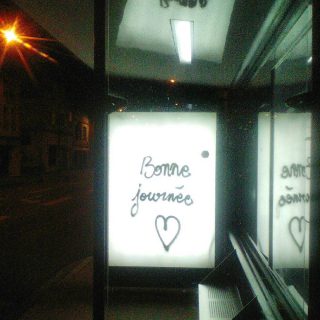 Bonne
journée